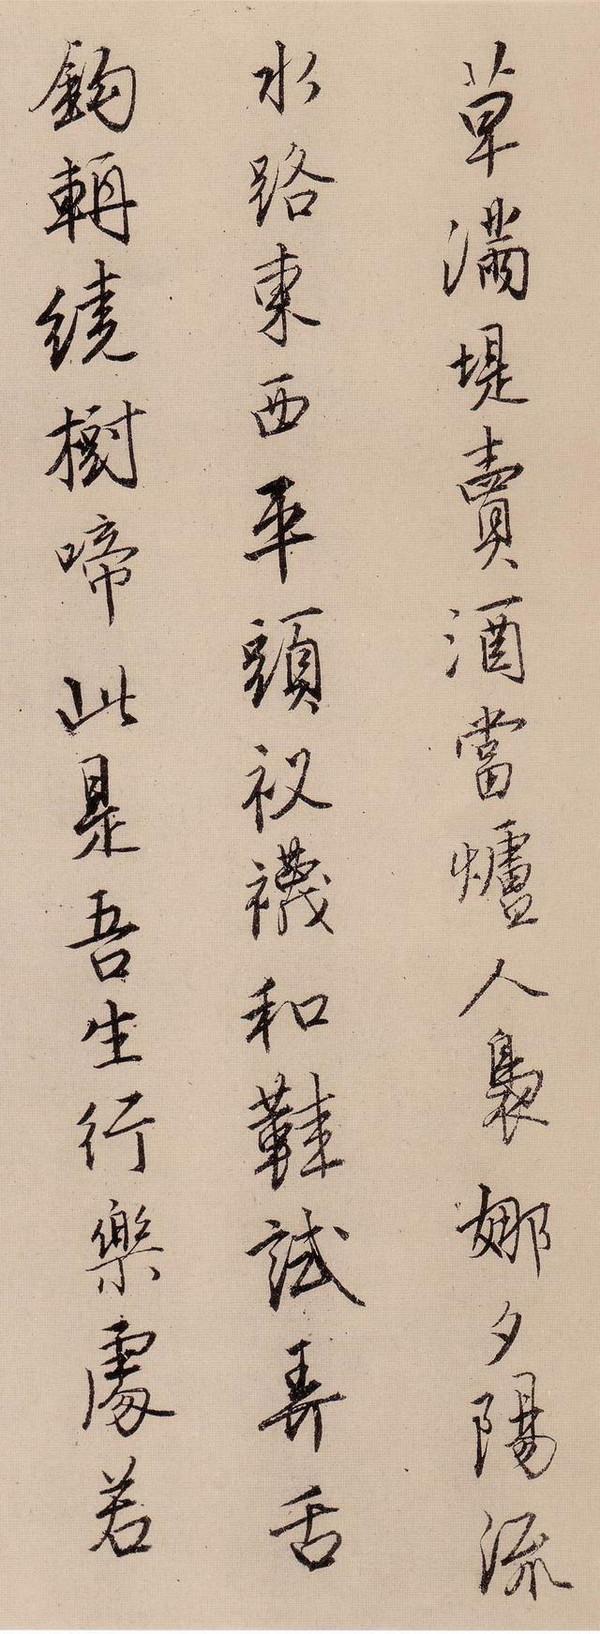 草滿堤賣酒當爐人裊娜夕陽流
水路東西平頭衩襪和鞋試弄舌
鉤輈繞樹啼此是吾生行樂處若